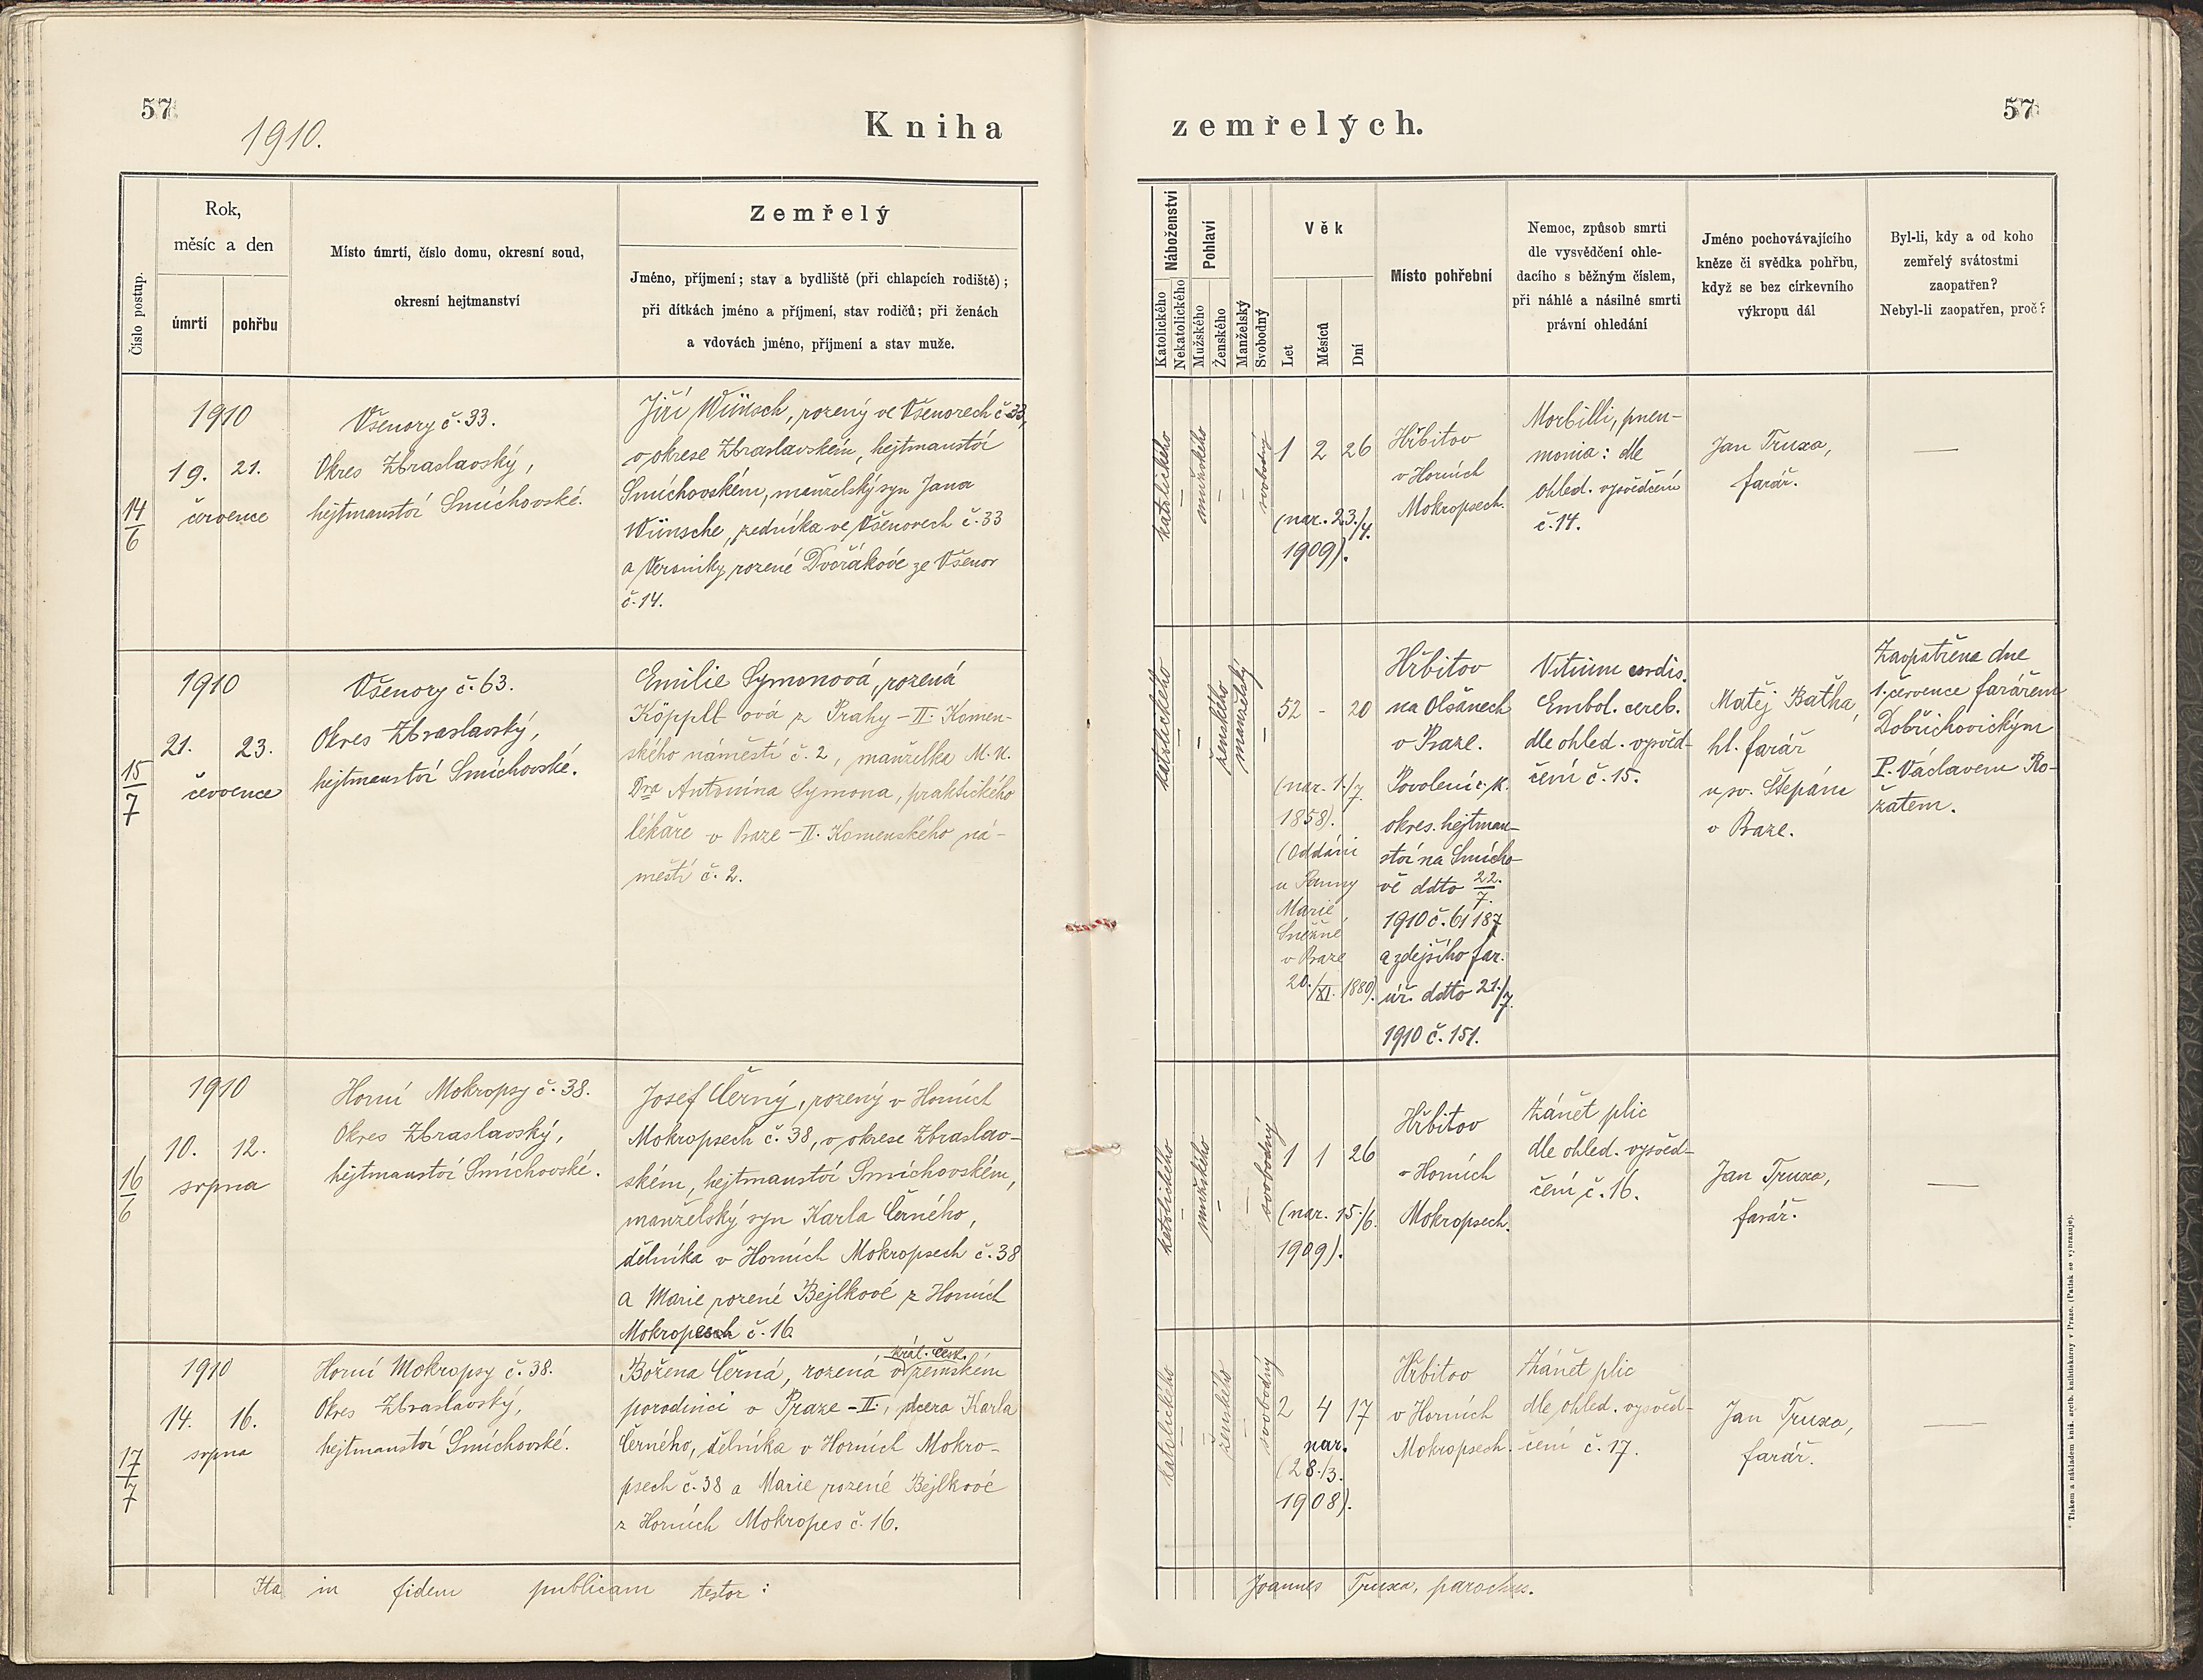 57
1910.
Kniha
Číslo postup.
Rok,
měsíc a den
úmrtí
pohřbu
Místo úmrtí, číslo domu, okresní soud,
okresní hejtmanství
Zemřelý
Jméno, příjmení; stav a bydliště (při chlapcích rodiště);
při dítkách jméno a příjmení, stav rodičů; při ženách
a vdovách jméno, příjmení a stav muže.
14/6
1910
19. 21.
července
Všenory č. 33.
Okres Zbraslavský,
hejtmanství Smíchovské.
Jiří Wünsch, rozený ve Všenorech č. 33,
v okrese Zbraslavském, hejtmanství
Smíchovském, manželský syn Jana
Wünsche, zedníka ve Všenorech č. 33
a Veroniky rozené Dvořákové ze Všenor
č. 14.
15/7
1910
21. 23.
července
Všenory č. 63.
Okres Zbraslavský,
hejtmanství Smíchovské.
Emilie Symonová, rozená
Köpplová z Prahy-II. Komen-
ského náměstí č. 2, manželka M. U.
Dra Antonína Symona, praktického
lékaře v Praze-II. Komenského ná-
městí č. 2.
16/6
1910
10. 12.
srpna
Horní Mokropsy č. 38.
Okres Zbraslavský,
hejtmanství Smíchovské.
Josef Černý, rozený v Horních
Mokropsech č. 38, v okrese Zbraslav-
ském, hejtmanství Smíchovském,
manželský syn Karla Černého,
dělníka v Horních Mokropsech č. 38
a Marie rozené Bejlkové z Horních
Mokropes č. 16
17/7
1910
14. 16.
srpna
Horní Mokropsy č. 38.
Okres Zbraslavský,
hejtmanství Smíchovské.
král. česk.
Božena Černá, rozená v zemském
porodinci v Praze-II., dcera Karla
Černého, dělníka v Horních Mokro-
psech č. 38 a Marie rozené Bejlkové
z Horních Mokropes č. 16.
Ita in fidem publicam testor:
57
zemřelých.
Náboženství
Katolického
Nekatolického
Pohlaví
Mužského
Ženského
Manželský
Svobodný
Věk
Let
Měsíců
Dní
Místo pohřební
Nemoc, způsob smrti
dle vysvědčení ohle-
dacího s běžným číslem,
při náhlé a násilné smrti
právní ohledání
Jméno pochovávajícího
kněze či svědka pohřbu,
když se bez církevního
výkropu dál
Byl-li, kdy a od koho
zemřelý svátostmi
zaopatřen?
Nebyl-li zaopatřen, proč?
katolického
–
mužského
–
–
svobodný
1 2 26
(nar. 23./4.
1909).
Hřbitov
v Horních
Mokropsech.
Morbilli, pneu-
monia: dle
ohled. vysvědčení
č. 14.
Jan Truxa,
farář.
—
katolického
–
–
ženského
manželský
–
52 - 20
(nar. 1./7.
1858).
(Oddáni
u Panny
Marie
Sněžné
v Praze
20./XI. 1880).
Hřbitov
na Olšanech
v Praze.
Povolení c. k.
okres. hejtman-
ství na Smícho-
vě ddto 22./7.
1910 č. 61187
a zdejšího far.
úř. ddto 21./7.
1910 č. 151.
Vitium cordis.
Embol. cereb.
dle ohled. vysvěd-
čení č. 15.
Matěj Baťha,
hl. farář
u sv. Štěpána
v Praze.
Zaopatřena dne
1. července farářem
Dobřichovickým
P. Václavem Ro-
žátem.
katolického
–
mužského
–
–
svobodný
1 1 26
(nar. 15./6.
1909).
Hřbitov
v Horních
Mokropsech.
Zánět plic
dle ohled. vysvěd-
čení č. 16.
Jan Truxa,
farář.
—
katolického
–
–
ženského
–
svobodný
2 4 17
nar.
(28./3.
1908).
Hřbitov
v Horních
Mokropsech.
Zánět plic
dle ohled. vysvěd-
čení č. 17.
Jan Truxa,
farář.
—
Joannes Truxa, parochus.
Tiskem a nákladem kníž. arcib. knihtiskárny v Praze. (Patisk se vyhrazuje).